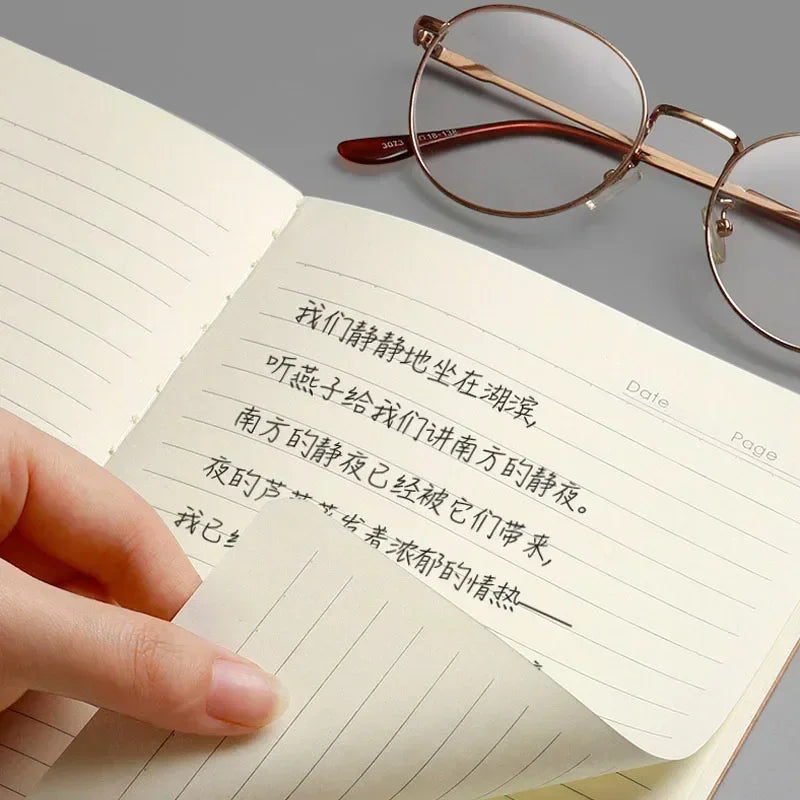 Date
Page
我们静静地坐在湖滨,
听燕子给我们讲南方的静夜。
南方的静夜已经被它们带来,
夜的芦 发着浓郁的情热——
我已
3073 18-138